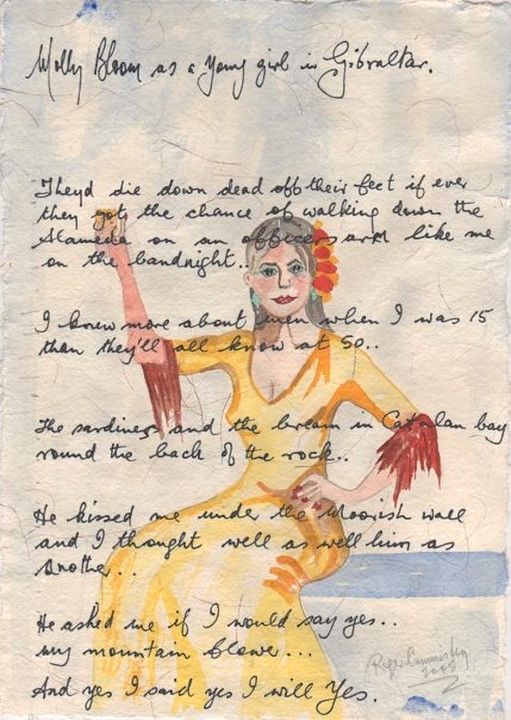 Molly Bloom as a young girl in Gibraltar.
Theyd die down dead off their feet if ever
they got the chance of walking down the
Alameda on an officers arm like me
on the bandnight..
I knew more about men when I was 15
than they'll all know at 50..
The sardines and the bream in Catalan bay
round the back of the rock..
He kissed me under the Moorish wall
and I thought well as well him as
another...
He asked me if I would say yes..
my mountain flower...
And yes I said yes I will Yes.
Roger Cummiskey